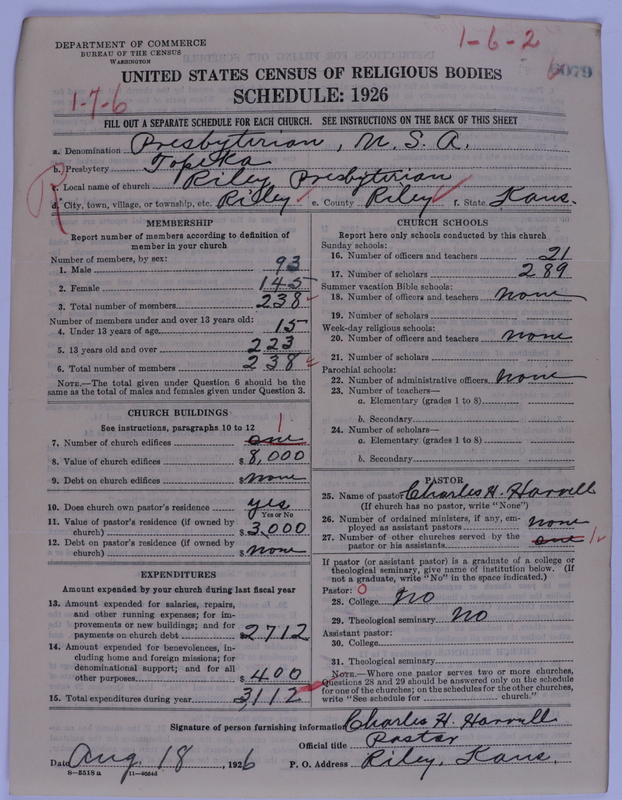 DEPARTMENT OF COMMERCE
BUREAU OF THE CENSUS
WASHINGTON
1-6-2
6079
UNITED STATES CENSUS OF RELIGIOUS BODIES
1-7-6
SCHEDULE: 1926
FILL OUT A SEPARATE SCHEDULE FOR EACH CHURCH. SEE INSTRUCTIONS ON THE BACK OF THIS SHEET
a. Denomination Presbyterian, U.S.A.
b. Presbytery Topeka
c. Local name of church Riley Presbyterian
d. City, town, village, or township, etc. Riley e. County Riley f. State Kans.
R
MEMBERSHIP
Report number of members according to definition of
member in your church
Number of members, by sex:
1. Male 93
2. Female 145
3. Total number of members 238
Number of members under and over 13 years old:
4. Under 13 years of age 15
5. 13 years old and over 223
6. Total number of members 238
NOTE.—The total given under Question 6 should be the
same as the total of males and females given under Question 3.
CHURCH BUILDINGS
See instructions, paragraphs 10 to 12
7. Number of church edifices one 1
8. Value of church edifices $8,000
9. Debt on church edifices $none
10. Does church own pastor's residence yes
Yes or No
11. Value of pastor's residence (if owned by
church) $3,000
12. Debt on pastor's residence (if owned by
church) $none
EXPENDITURES
Amount expended by your church during last fiscal year
13. Amount expended for salaries, repairs,
and other running expenses; for im-
provements or new buildings; and for
payments on church debt $2712
14. Amount expended for benevolences, in-
cluding home and foreign missions; for
denominational support; and for all
other purposes $400
15. Total expenditures during year 3112
CHURCH SCHOOLS
Report here only schools conducted by this church
Sunday schools:
16. Number of officers and teachers 21
17. Number of scholars 289
Summer vacation Bible schools:
18. Number of officers and teachers none
19. Number of scholars
Week-day religious schools:
20. Number of officers and teachers none
21. Number of scholars
Parochial schools:
22. Number of administrative officers none
23. Number of teachers—
a. Elementary (grades 1 to 8)
b. Secondary
24. Number of scholars—
a. Elementary (grades 1 to 8)
b. Secondary
PASTOR
25. Name of pastor Charles H. Harvell
(If church has no pastor, write "None")
26. Number of ordained ministers, if any, em-
ployed as assistant pastors none
27. Number of other churches served by the
pastor or his assistants one 1
If pastor (or assistant pastor) is a graduate of a college or
theological seminary, give name of institution below. (If
not a graduate, write "No" in the space indicated.)
Pastor: 0
28. College No
29. Theological seminary No
Assistant pastor:
30. College
31. Theological seminary
NOTE.—Where one pastor serves two or more churches,
Questions 28 and 29 should be answered only on the schedule
for one of the churches; on the schedules for the other churches,
write "See schedule for church."
Signature of person furnishing information Charles H. Harvell
Official title Pastor
Date Aug. 18, 1926 P. O. Address Riley, Kans.
8-5518 a